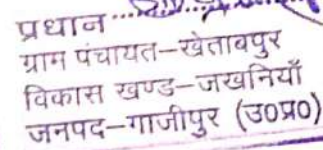 प्रधान
ग्राम पंचायत–खेताबपुर
विकास खण्ड–जखनियाँ
जनपद–गाजीपुर (उ०प्र०)